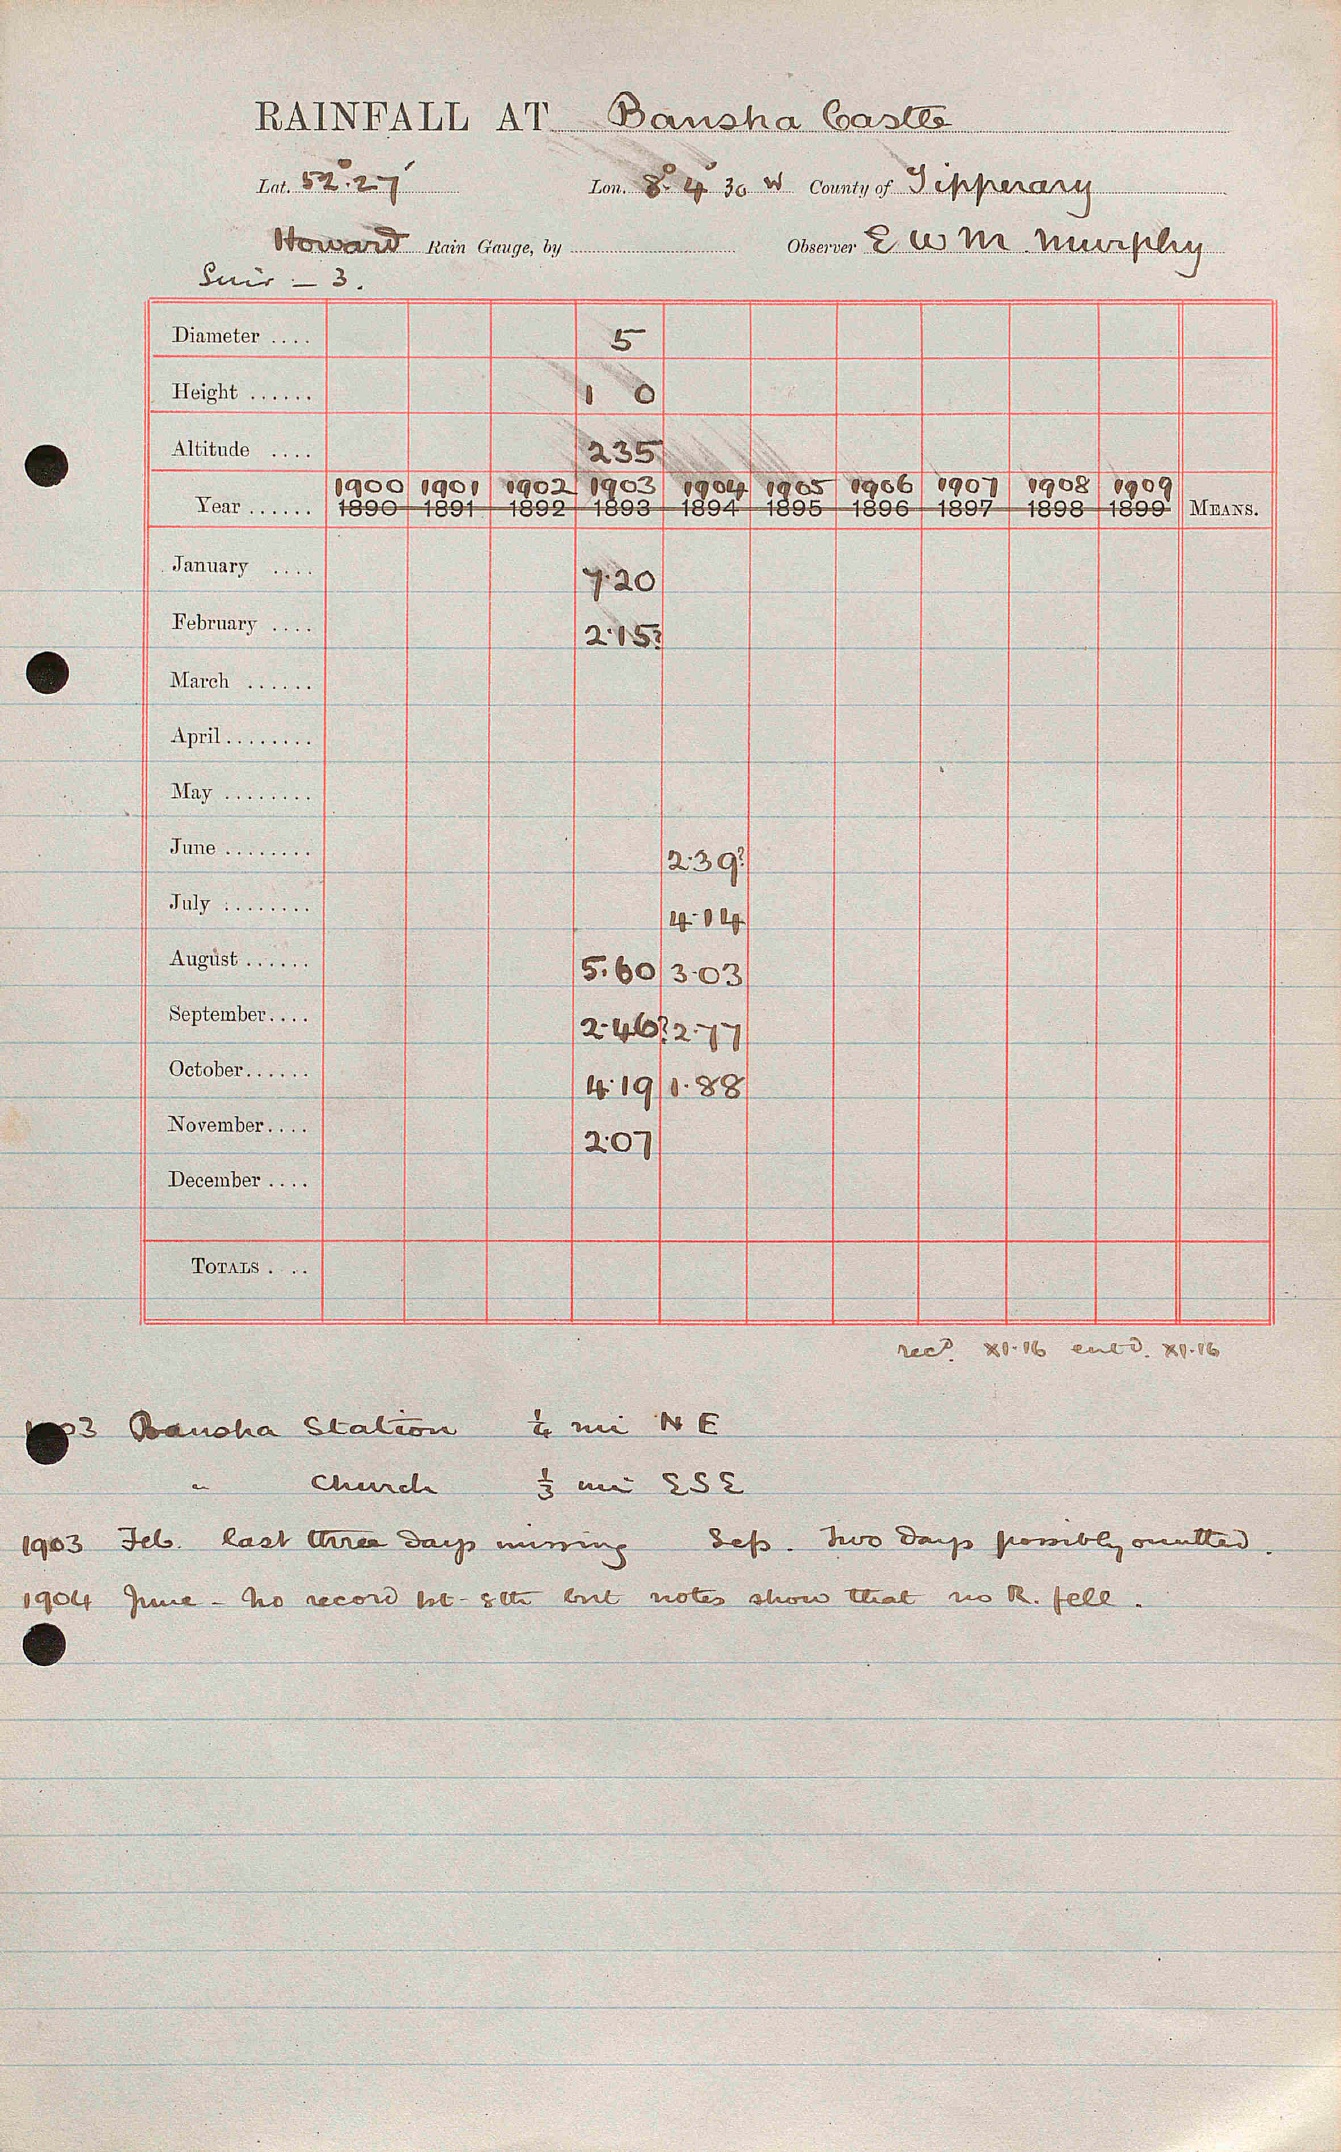 RAINFALL AT Bansha Castle
Lat. 52°.27' Lon. 8° 4° 30 W County of Tipperary
Howard Rain Gauge, by Observer E W M Murphy
Suir - 3.
Diameter .... 5
Height ...... 1 0
Altitude .... 235
1900 1901 1902 1903 1904 1905 1906 1907 1908 1909
Year ...... 1890 1891 1892 1893 1894 1895 1896 1897 1898 1899 MEANS.
January .... 7.20
February .... 2.15?
March ......
April ........
May ........
June ........ 2.39?
July ........ 4.14
August ...... 5.60 3.03
September .... 2.46? 2.77
October ...... 4.19 1.88
November .... 2.07
December ....
TOTALS . ..
recd. XI.16 entd. XI.16
03 Bansha Station 1/4 mi N E
" Church 1/3 mi ESE
1903 Feb. last three days missing Sep. Two days possibly omitted.
1904 June - No record 1st - 8th but notes show that no R. fell.